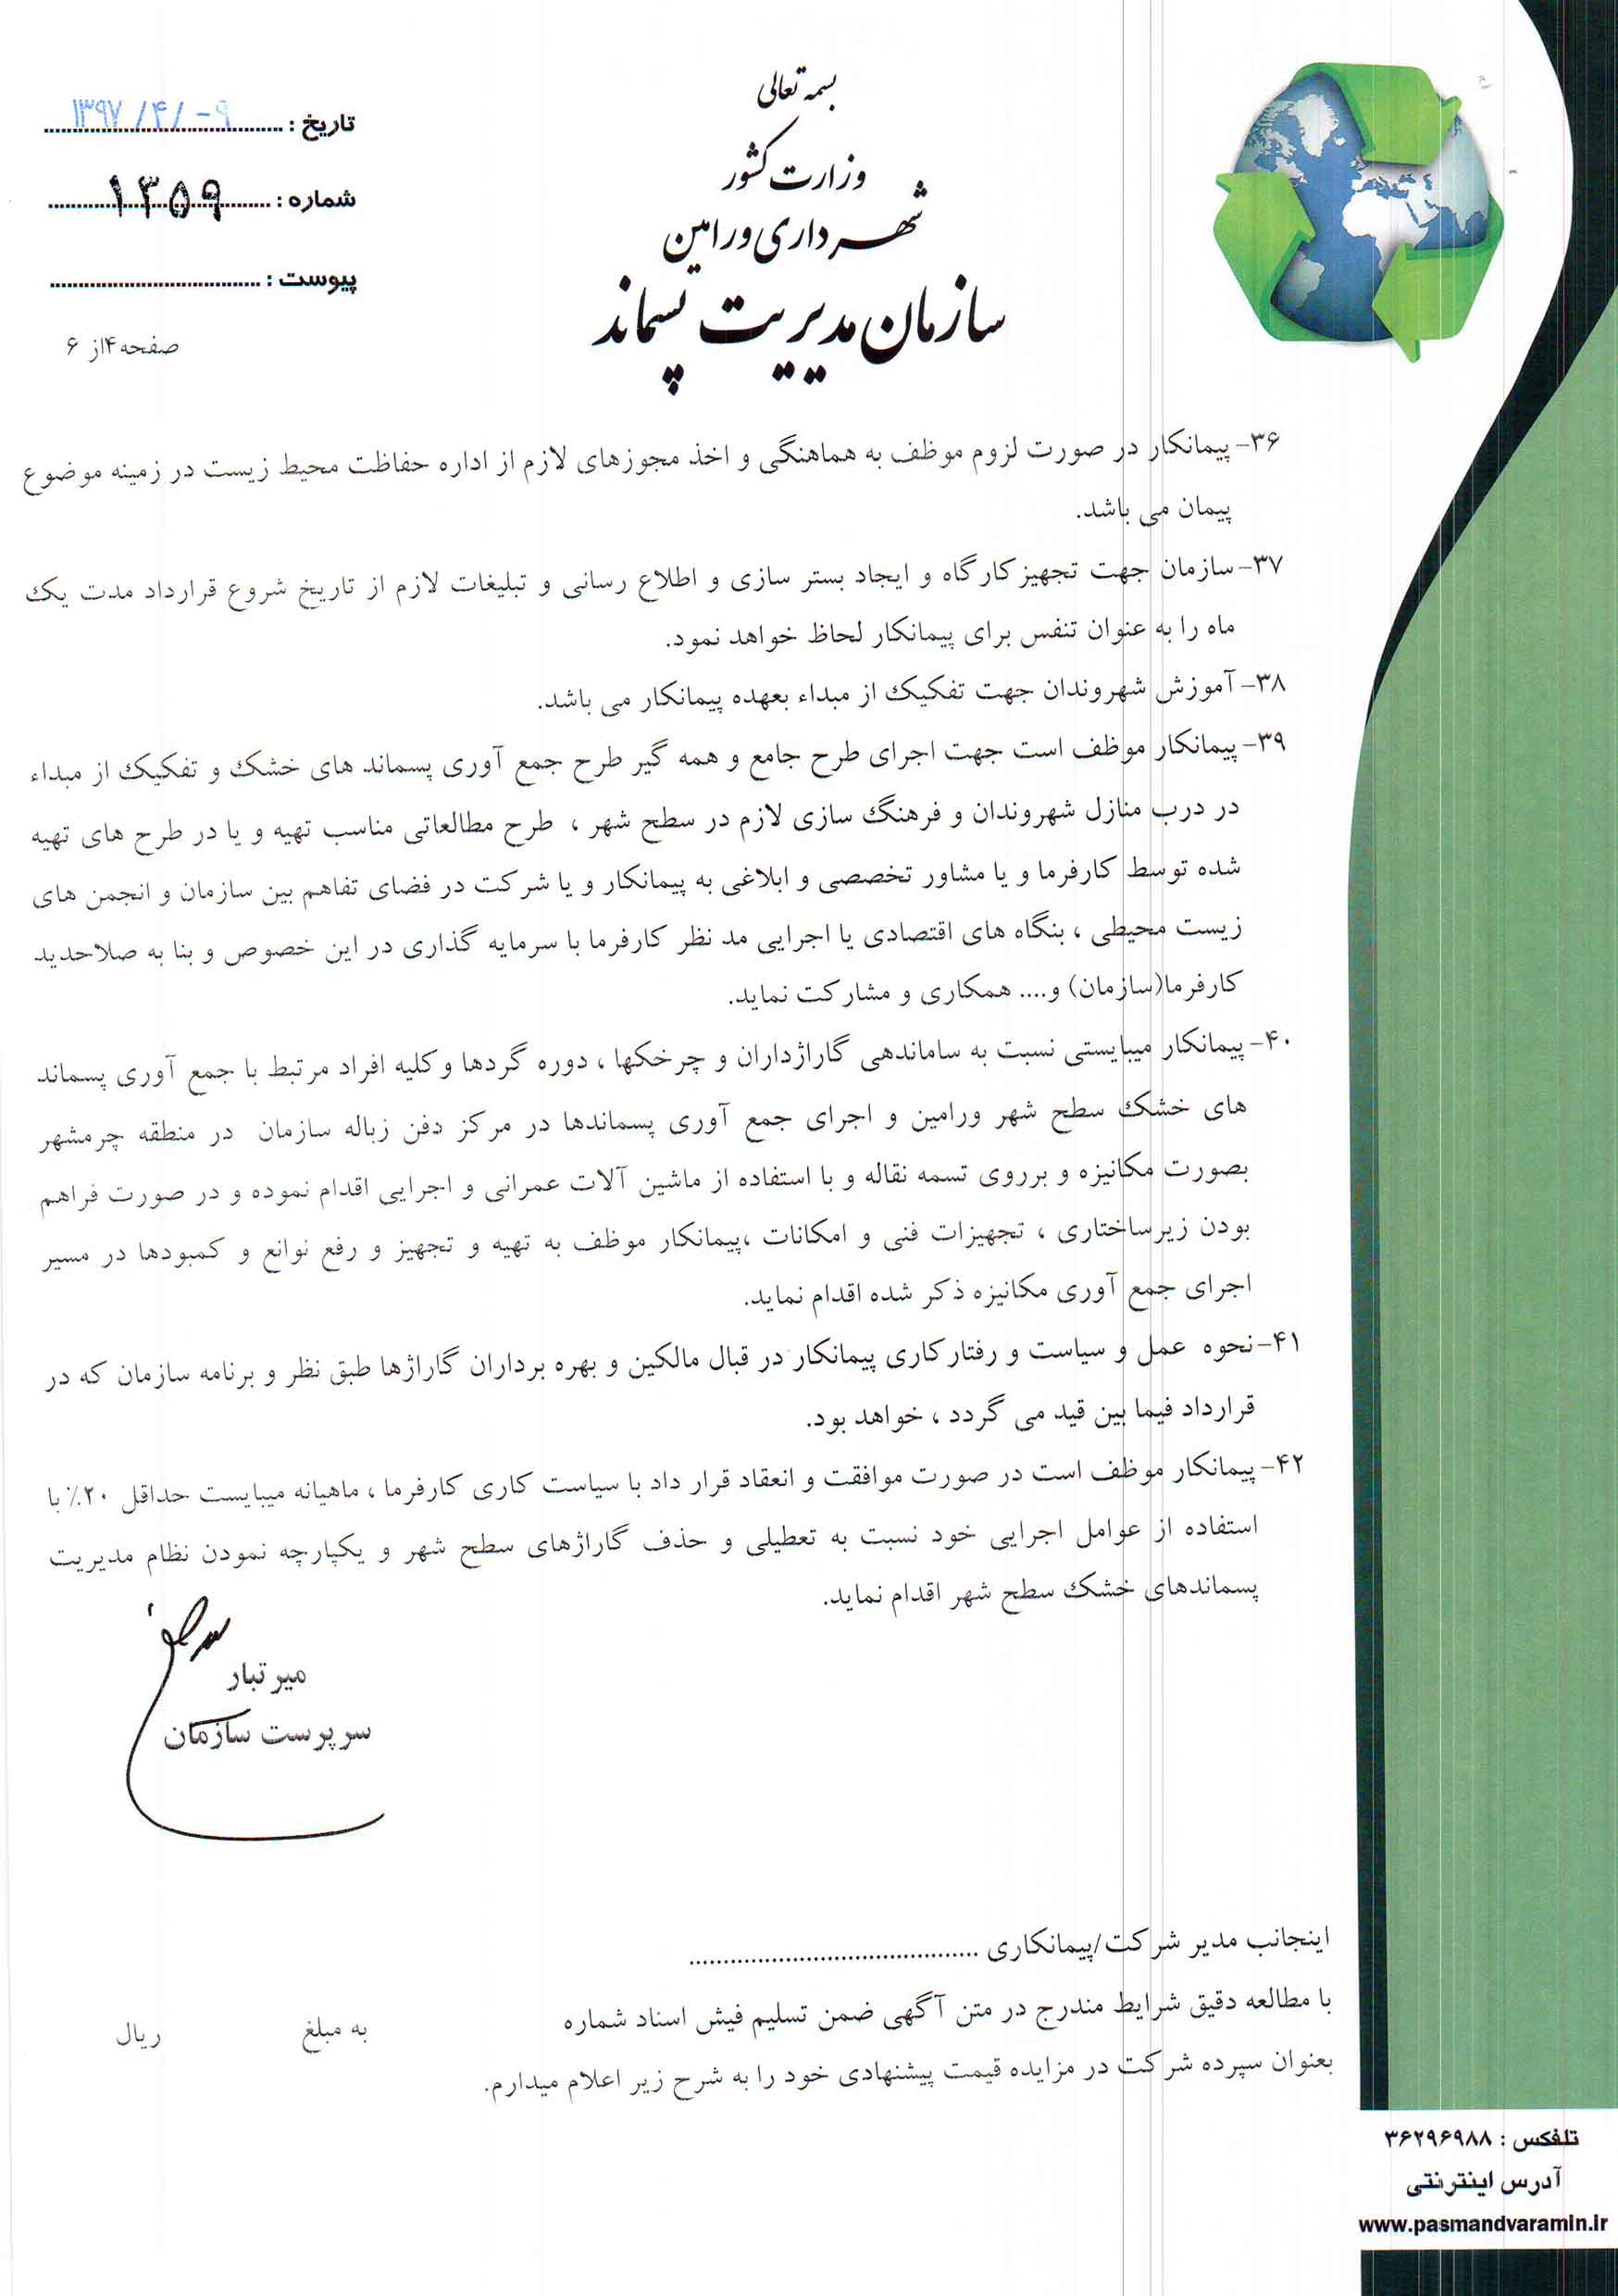 بسمه تعالی
وزارت کشور
شهرداری ورامین
سازمان مدیریت پسماند
تاریخ : ۱۳۹۷/۴/-۹
شماره : ۱۳۵۹
پیوست :
صفحه۴از ۶
۳۶- پیمانکار در صورت لزوم موظف به هماهنگی و اخذ مجوزهای لازم از اداره حفاظت محیط زیست در زمینه موضوع
پیمان می باشد.
۳۷- سازمان جهت تجهیزکارگاه و ایجاد بستر سازی و اطلاع رسانی و تبلیغات لازم از تاریخ شروع قرارداد مدت یک
ماه را به عنوان تنفس برای پیمانکار لحاظ خواهد نمود.
۳۸- آموزش شهروندان جهت تفکیک از مبداء بعهده پیمانکار می باشد.
۳۹- پیمانکار موظف است جهت اجرای طرح جامع و همه گیر طرح جمع آوری پسماند های خشک و تفکیک از مبداء
در درب منازل شهروندان و فرهنگ سازی لازم در سطح شهر ، طرح مطالعاتی مناسب تهیه و یا در طرح های تهیه
شده توسط کارفرما و یا مشاور تخصصی و ابلاغی به پیمانکار و یا شرکت در فضای تفاهم بین سازمان و انجمن های
زیست محیطی ، بنگاه های اقتصادی یا اجرایی مد نظر کارفرما با سرمایه گذاری در این خصوص و بنا به صلاحدید
کارفرما(سازمان) و.... همکاری و مشارکت نماید.
۴۰- پیمانکار میبایستی نسبت به ساماندهی گاراژداران و چرخکها ، دوره گردها وکلیه افراد مرتبط با جمع آوری پسماند
های خشک سطح شهر ورامین و اجرای جمع آوری پسماندها در مرکز دفن زباله سازمان در منطقه چرمشهر
بصورت مکانیزه و برروی تسمه نقاله و با استفاده از ماشین آلات عمرانی و اجرایی اقدام نموده و در صورت فراهم
بودن زیرساختاری ، تجهیزات فنی و امکانات ،پیمانکار موظف به تهیه و تجهیز و رفع نوانع و کمبودها در مسیر
اجرای جمع آوری مکانیزه ذکر شده اقدام نماید.
۴۱- نحوه عمل و سیاست و رفتارکاری پیمانکار در قبال مالکین و بهره برداران گاراژها طبق نظر و برنامه سازمان که در
قرارداد فیما بین قید می گردد ، خواهد بود.
۴۲- پیمانکار موظف است در صورت موافقت و انعقاد قرار داد با سیاست کاری کارفرما ، ماهیانه میبایست حداقل ۲۰٪ با
استفاده از عوامل اجرایی خود نسبت به تعطیلی و حذف گاراژهای سطح شهر و یکپارچه نمودن نظام مدیریت
پسماندهای خشک سطح شهر اقدام نماید.
میر تبار
سرپرست سازمان
اینجانب مدیر شرکت/پیمانکاری ..........................................
با مطالعه دقیق شرایط مندرج در متن آگهی ضمن تسلیم فیش اسناد شماره به مبلغ ریال
بعنوان سپرده شرکت در مزایده قیمت پیشنهادی خود را به شرح زیر اعلام میدارم.
تلفکس : ۳۶۲۹۶۹۸۸
آدرس اینترنتی
www.pasmandvaramin.ir